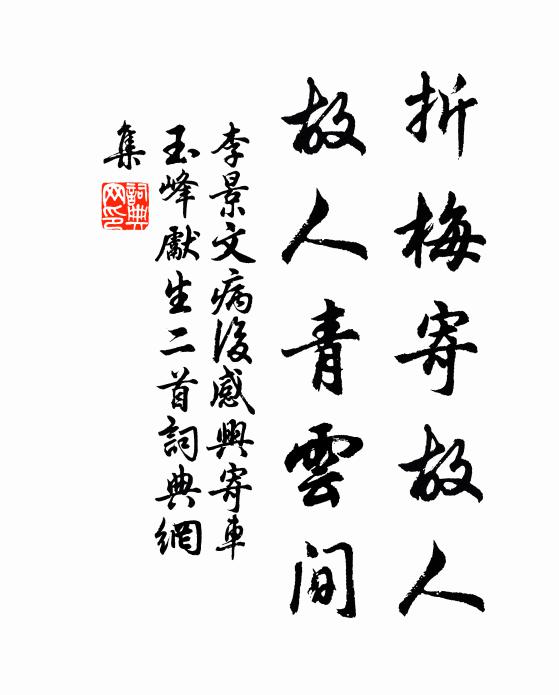 折梅寄故人
故人青雲間
李景文病後感興寄車
玉峰獻生二首詞典網
集
詞典網印